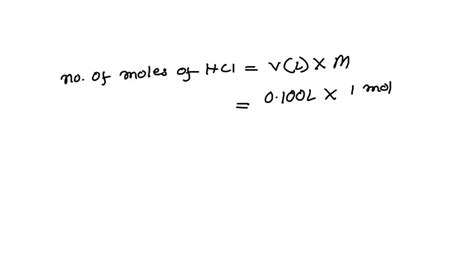 no. of moles of HCl = V(L) × M
= 0.100L × 1 mol